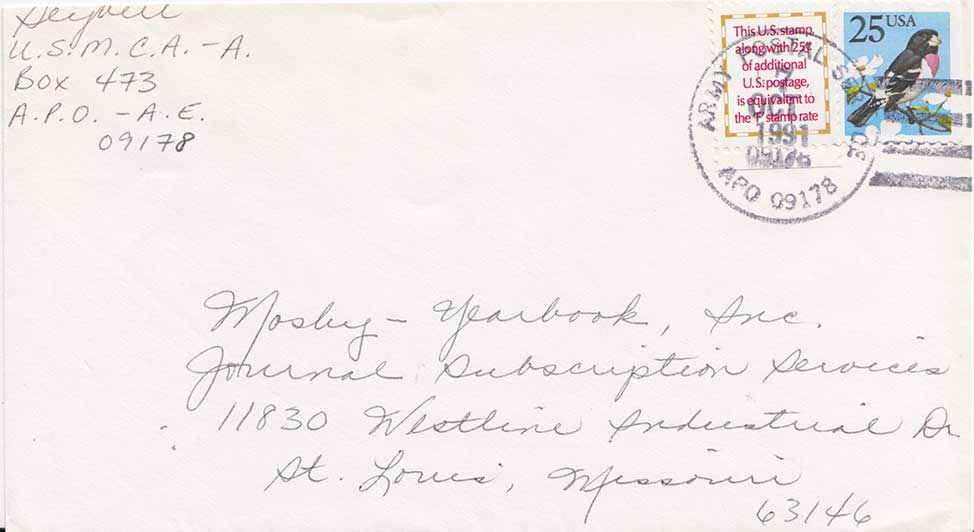 U.S.M.C.A. -A.
Box 473
A.P.O. -A.E.
09178
This U.S. stamp,
along with 25¢
of additional
U.S. postage,
is equivalent to
the 'F' stamp rate
25 USA
ARMY POSTAL SERVICE
7
OCT
1991
09178
APO 09178
Mosby - Yearbook, Inc.
Journal Subscription Services
11830 Westline Industrial Dr
St. Louis, Missouri
63146